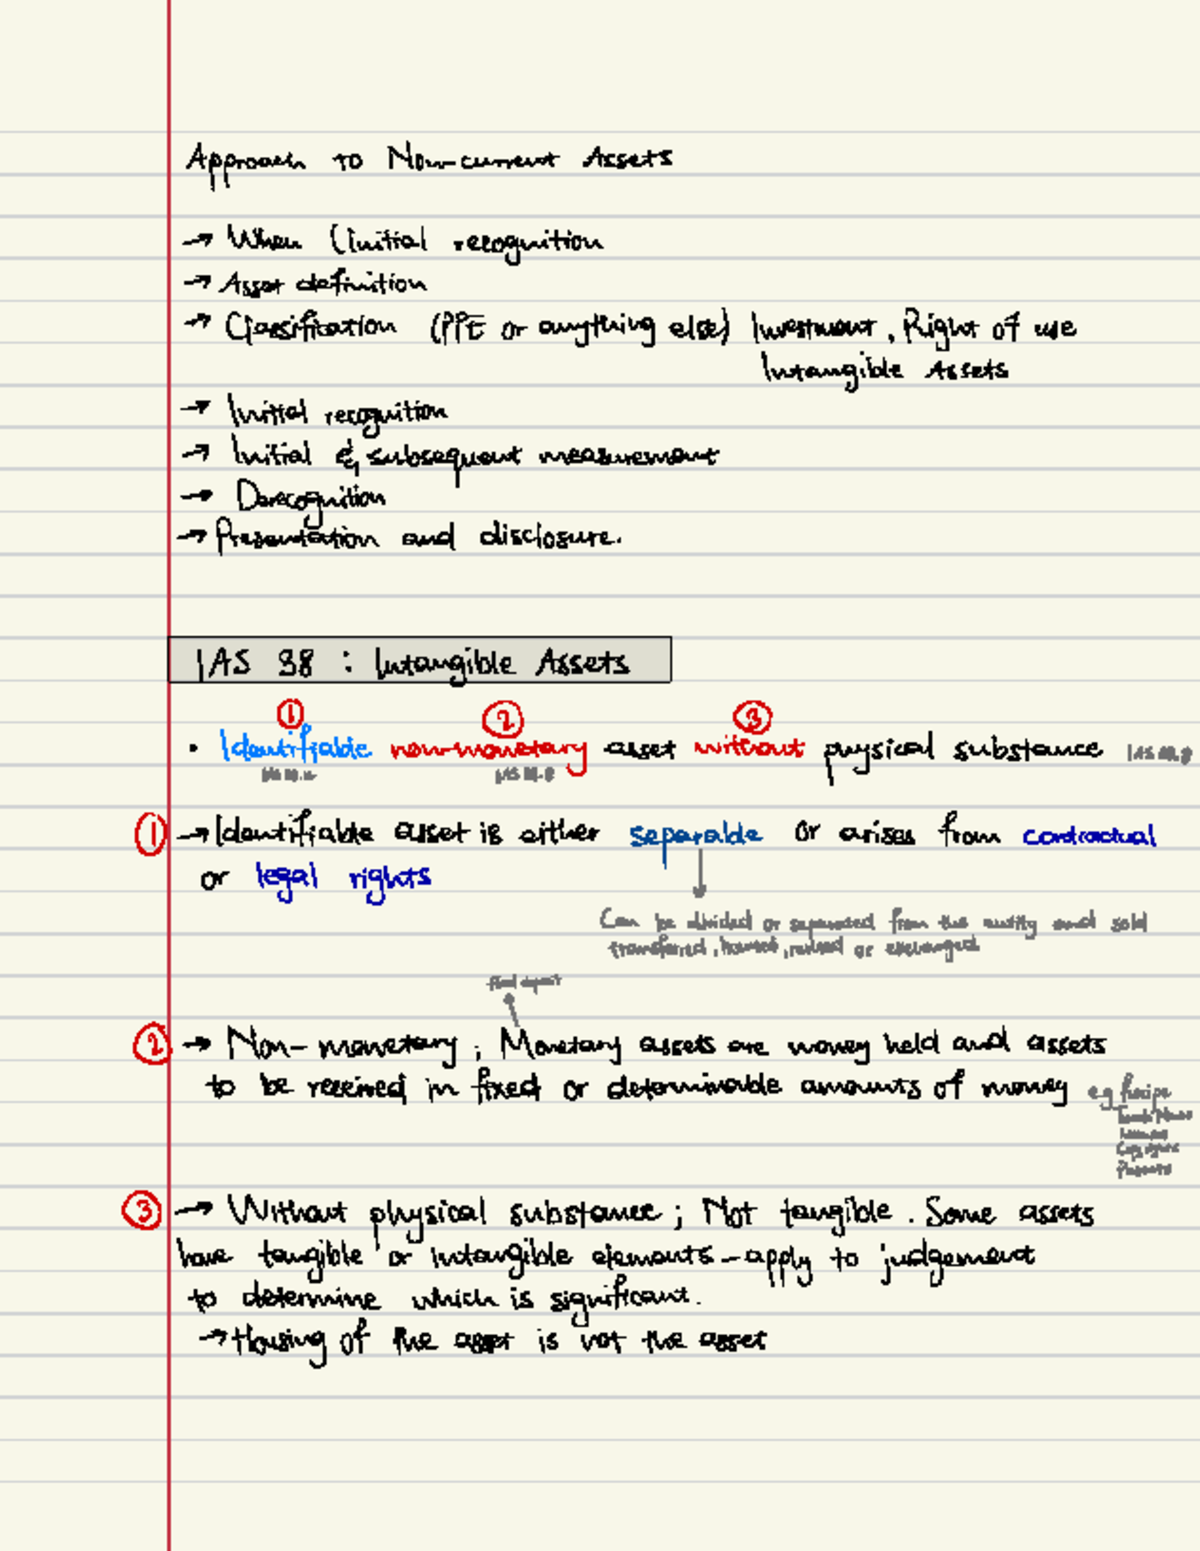 Approach to Non-current Assets
→ When (Initial recognition
→ Asset definition
→ Classification (PPE or anything else) Investment, Right of use
Intangible Assets
→ Initial recognition
→ Initial & subsequent measurement
→ Derecognition
→ Presentation and disclosure.
IAS 38 : Intangible Assets
① ② ③
• Identifiable non-monetary asset without physical substance IAS 38.8
IAS 38.8
① → Identifiable asset is either separable or arises from contractual
or legal rights
Can be divided or separated from the entity and sold
transferred, licensed, rented or exchanged
fixed deposit
② → Non-monetary ; Monetary assets are money held and assets
to be received in fixed or determinable amounts of money e.g Recipe
Licenses
Copyrights
Patents
③ → Without physical substance ; Not tangible. Some assets
have tangible or intangible elements - apply to judgement
to determine which is significant.
→ Housing of the asset is not the asset